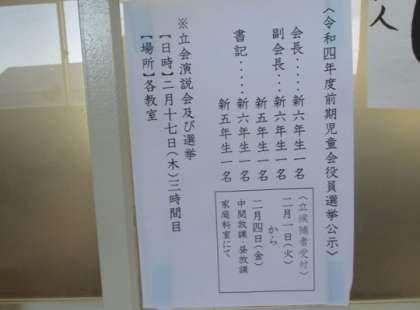 〈令和四年度前期児童会役員選挙公示〉
会長‥‥新六年生一名
副会長‥新六年生一名
新五年生一名
書記‥‥新六年生一名
新五年生一名
〈立候補者受付〉
二月一日(火)
から
二月四日(金)
中間放課・昼放課
家庭科室にて
※立会演説会及び選挙
【日時】二月十七日(木)三時間目
【場所】各教室
人